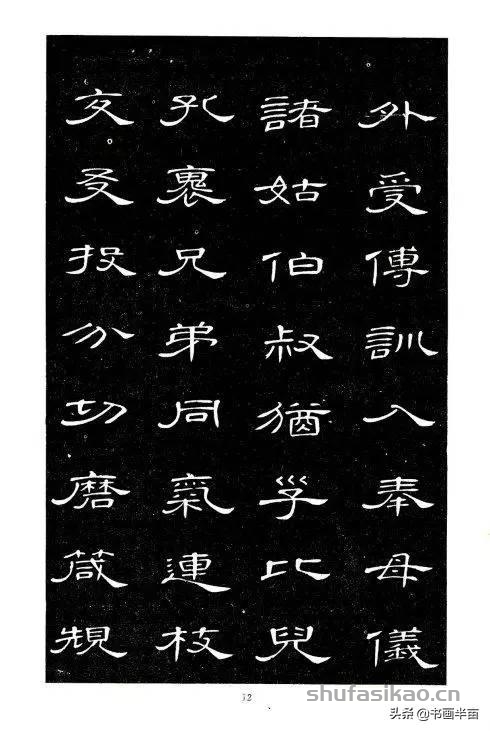 外受傅訓入奉母儀
諸姑伯叔猶㜽比兒
孔褱兄弟同氣連枝
交友投分切磨箴規
shufasikao.cn
头条 @书画半亩